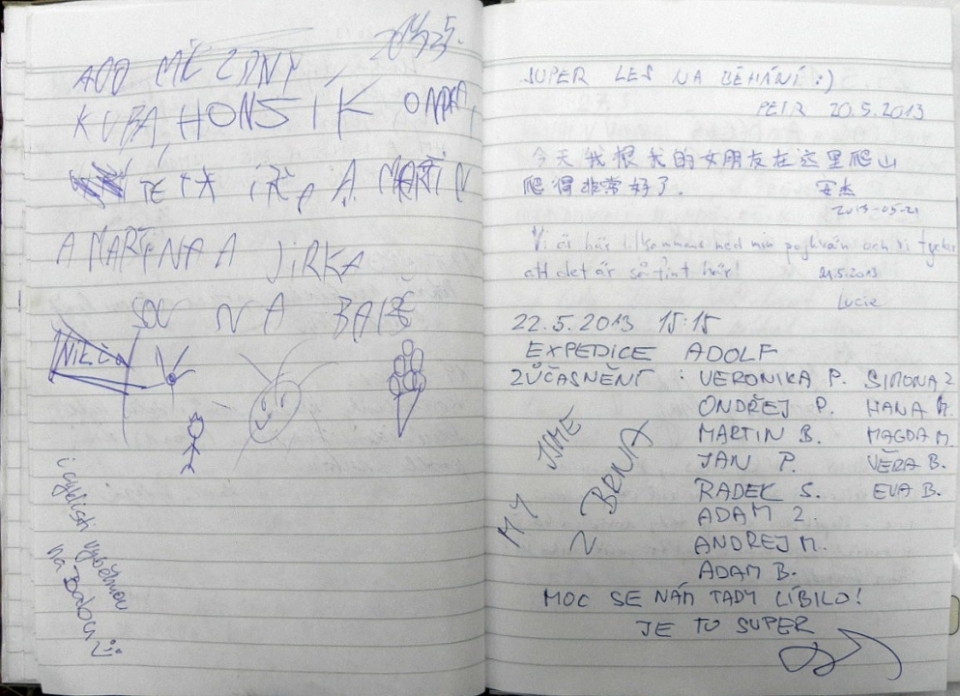 KUBA, HONSÍK ONDRA,
A MARTIN
A MARTINA A JIRKA
NA
i cyklisti vyběhnou
na Babu :)
SUPER LES NA BĚHÁNÍ :)
PETR 20.5.2013
今天我根我的女朋友在这里爬山
爬得非常好了.
2013-05-21
Vi är här tillkommans med min pojkvän och vi tycker
att det är så fint här!
21.5.2013
Lucie
22.5.2013 15:15
EXPEDICE ADOLF
ZÚČASNĚNÍ : VERONIKA P. SIMONA Z.
ONDŘEJ P. HANA M.
MARTIN B. MAGDA M.
JAN P. VĚRA B.
RADEK S. EVA B.
ADAM Z.
ANDREJ M.
ADAM B.
MY JSME
Z BRNA
MOC SE NÁM TADY LÍBILO!
JE TO SUPER